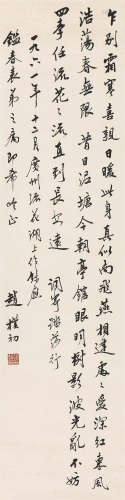 乍别霜寒喜亲日暖此身真似南飞燕相逢处处爱深红东风
浩荡春无限 昔日沮塘今朝亭馆眼明树影波光乱不妨
四季任流花之流直到长安远 调寄踏莎行
一九六一年十二月广州流花湖上作録应
鑑春表弟之属即希吟正
赵朴初